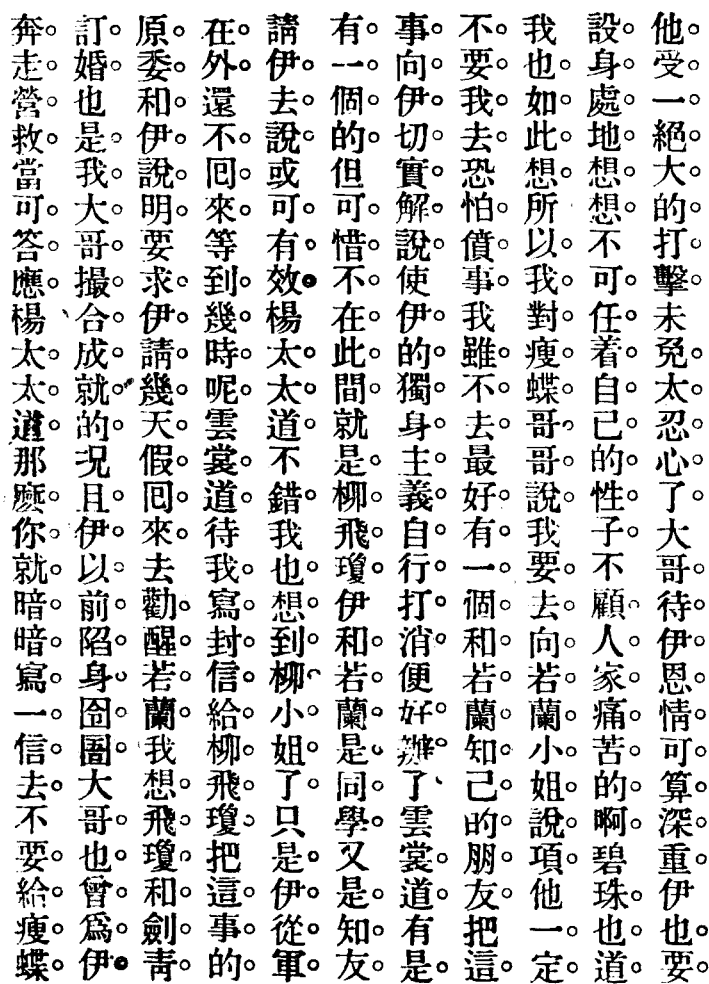 他受一絕大的打擊未免太忍心了大哥待伊恩情可算深重伊也要
設身處地想想不可任着自己的性子不顧人家痛苦的啊碧珠也道
我也如此想所以我對瘦蝶哥哥說我要去向若蘭小姐說項他一定
不要我去恐怕僨事我雖不去最好有一個和若蘭知己的朋友把這
事向伊切實解說使伊的獨身主義自行打消便好辦了雲裳道有是
有一個的但可惜不在此間就是柳飛瓊伊和若蘭是同學又是知友
請伊去說或可有效楊太太道不錯我也想到柳小姐了只是伊從軍
在外還不回來等到幾時呢雲裳道待我寫封信給柳飛瓊把這事的
原委和伊說明要求伊請幾天假回來去勸醒若蘭我想飛瓊和劍青
訂婚也是我大哥撮合成就的況且伊以前陷身囹圄大哥也曾爲伊
奔走營救當可答應楊太太道那麼你就暗暗寫一信去不要給瘦蝶